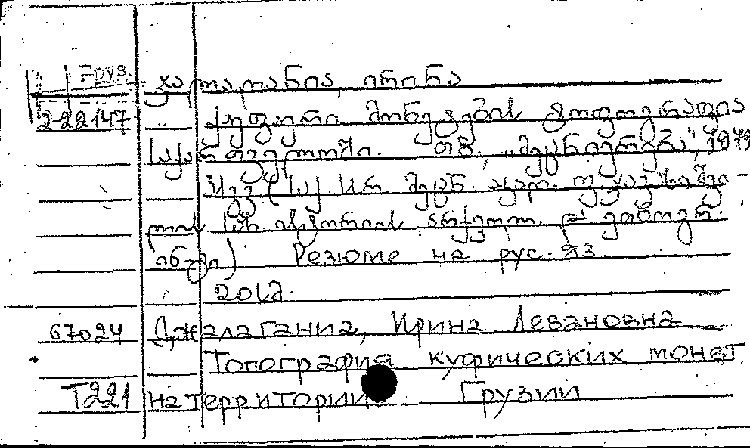 Груз. ჯალაღანია, ირინა
2-22147 ქუფური მონეტების ტოპოგრაფია
საქართველოში. თბ., „მეცნიერება", 1979
(საქ. სსრ მეცნ. აკად.
ინ-ტი) Резюме на рус. яз.
20 см.
67024 Джалагания, Ирина Левановна
Топография куфических монет
T221 на территории Грузии